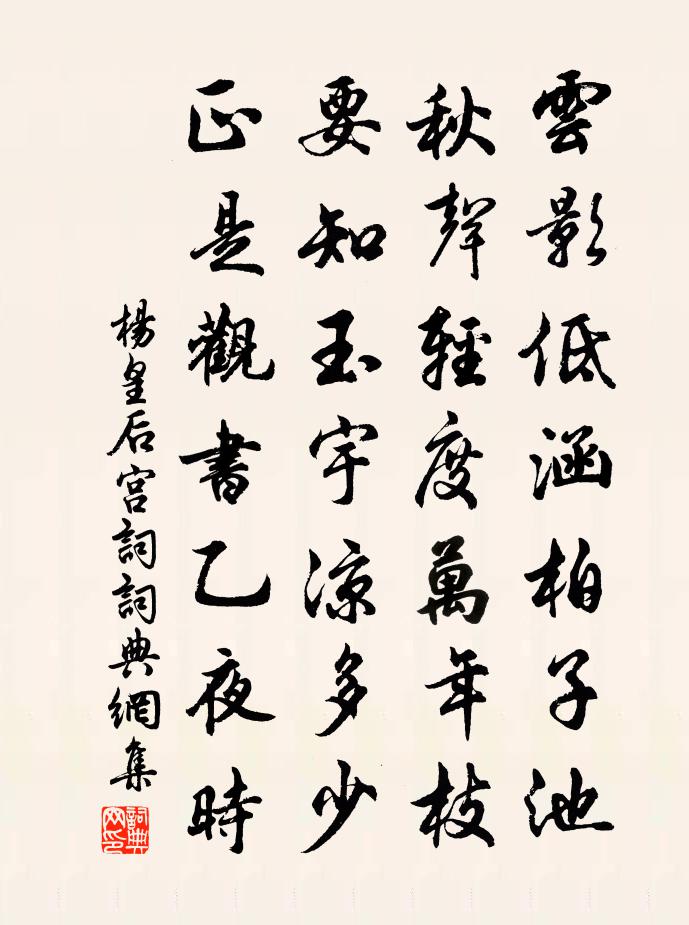 雲影低涵柏子池
秋聲輕度萬年枝
要知玉宇涼多少
正是觀書乙夜時
楊皇后宮詞詞典網集
詞典網印